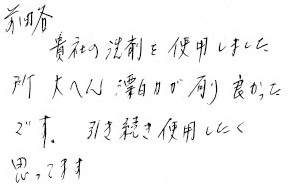 前略
貴社の洗剤を使用しました
所 大へん 漂白力が有り 良かった
です。 引き続き使用したく
思ってます